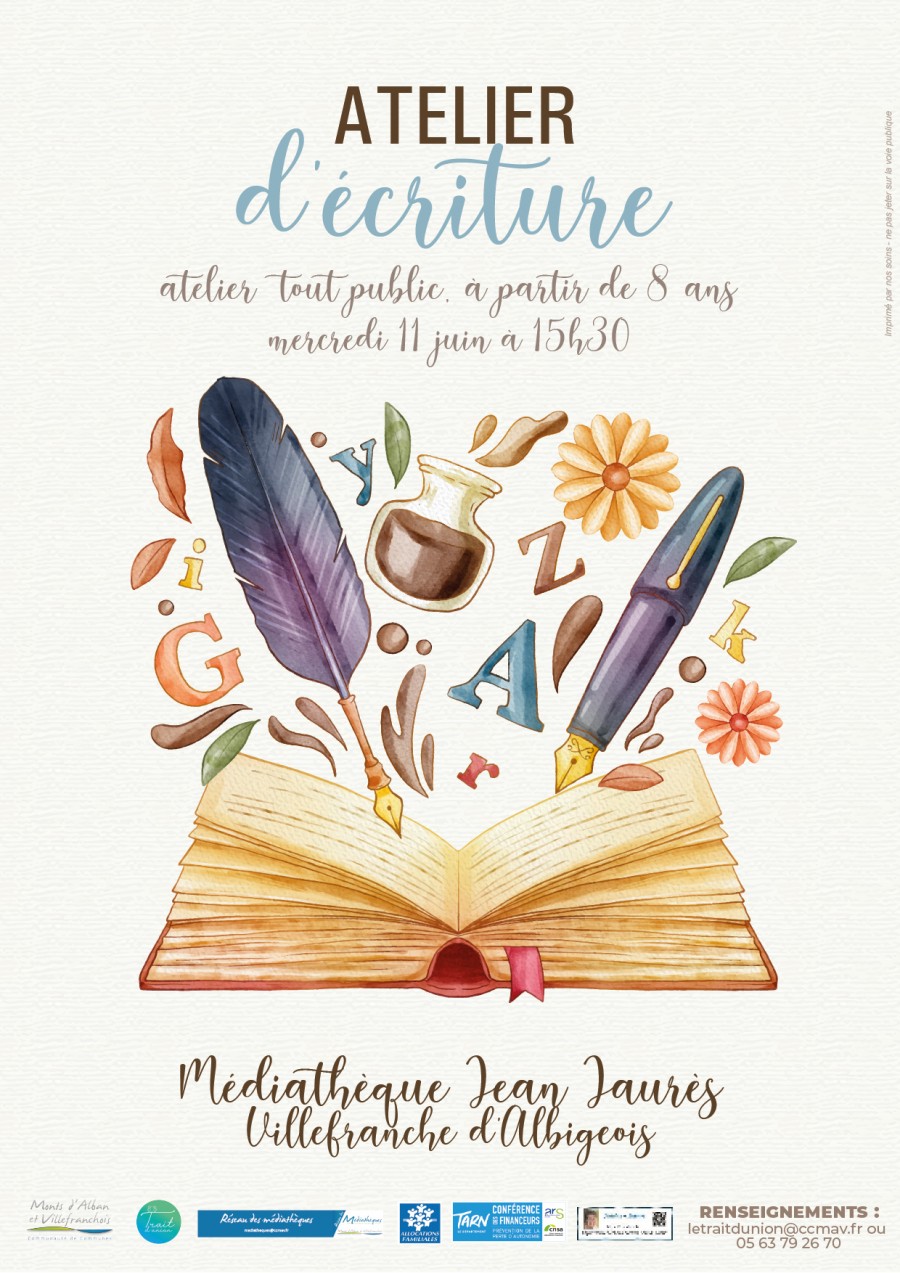 ATELIER
d'écriture
atelier tout public, à partir de 8 ans
mercredi 11 juin à 15h30
Imprimé par nos soins - ne pas jeter sur la voie publique
y
i
Z
G
k
A
r
Médiathèque Jean Jaurès
Villefranche d'Albigeois
Monts d'Alban
et Villefranchois
COMMUNAUTÉ DE COMMUNES
Trait
d'union
Réseau des médiathèques
mediatheque@ccmav.fr
Médiathèques
ALLOCATIONS
FAMILIALES
TARN
LE DÉPARTEMENT
CONFÉRENCE
DES FINANCEURS
PRÉVENTION DE LA
PERTE D'AUTONOMIE
ars
cnsa
RENSEIGNEMENTS :
letraitdunion@ccmav.fr ou
05 63 79 26 70